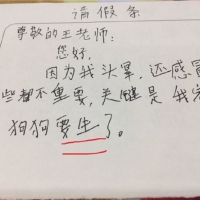 请假条
尊敬的王老师:
您好,
因为我头晕,还感冒
些都不重要,关键是我家
狗狗要生了。